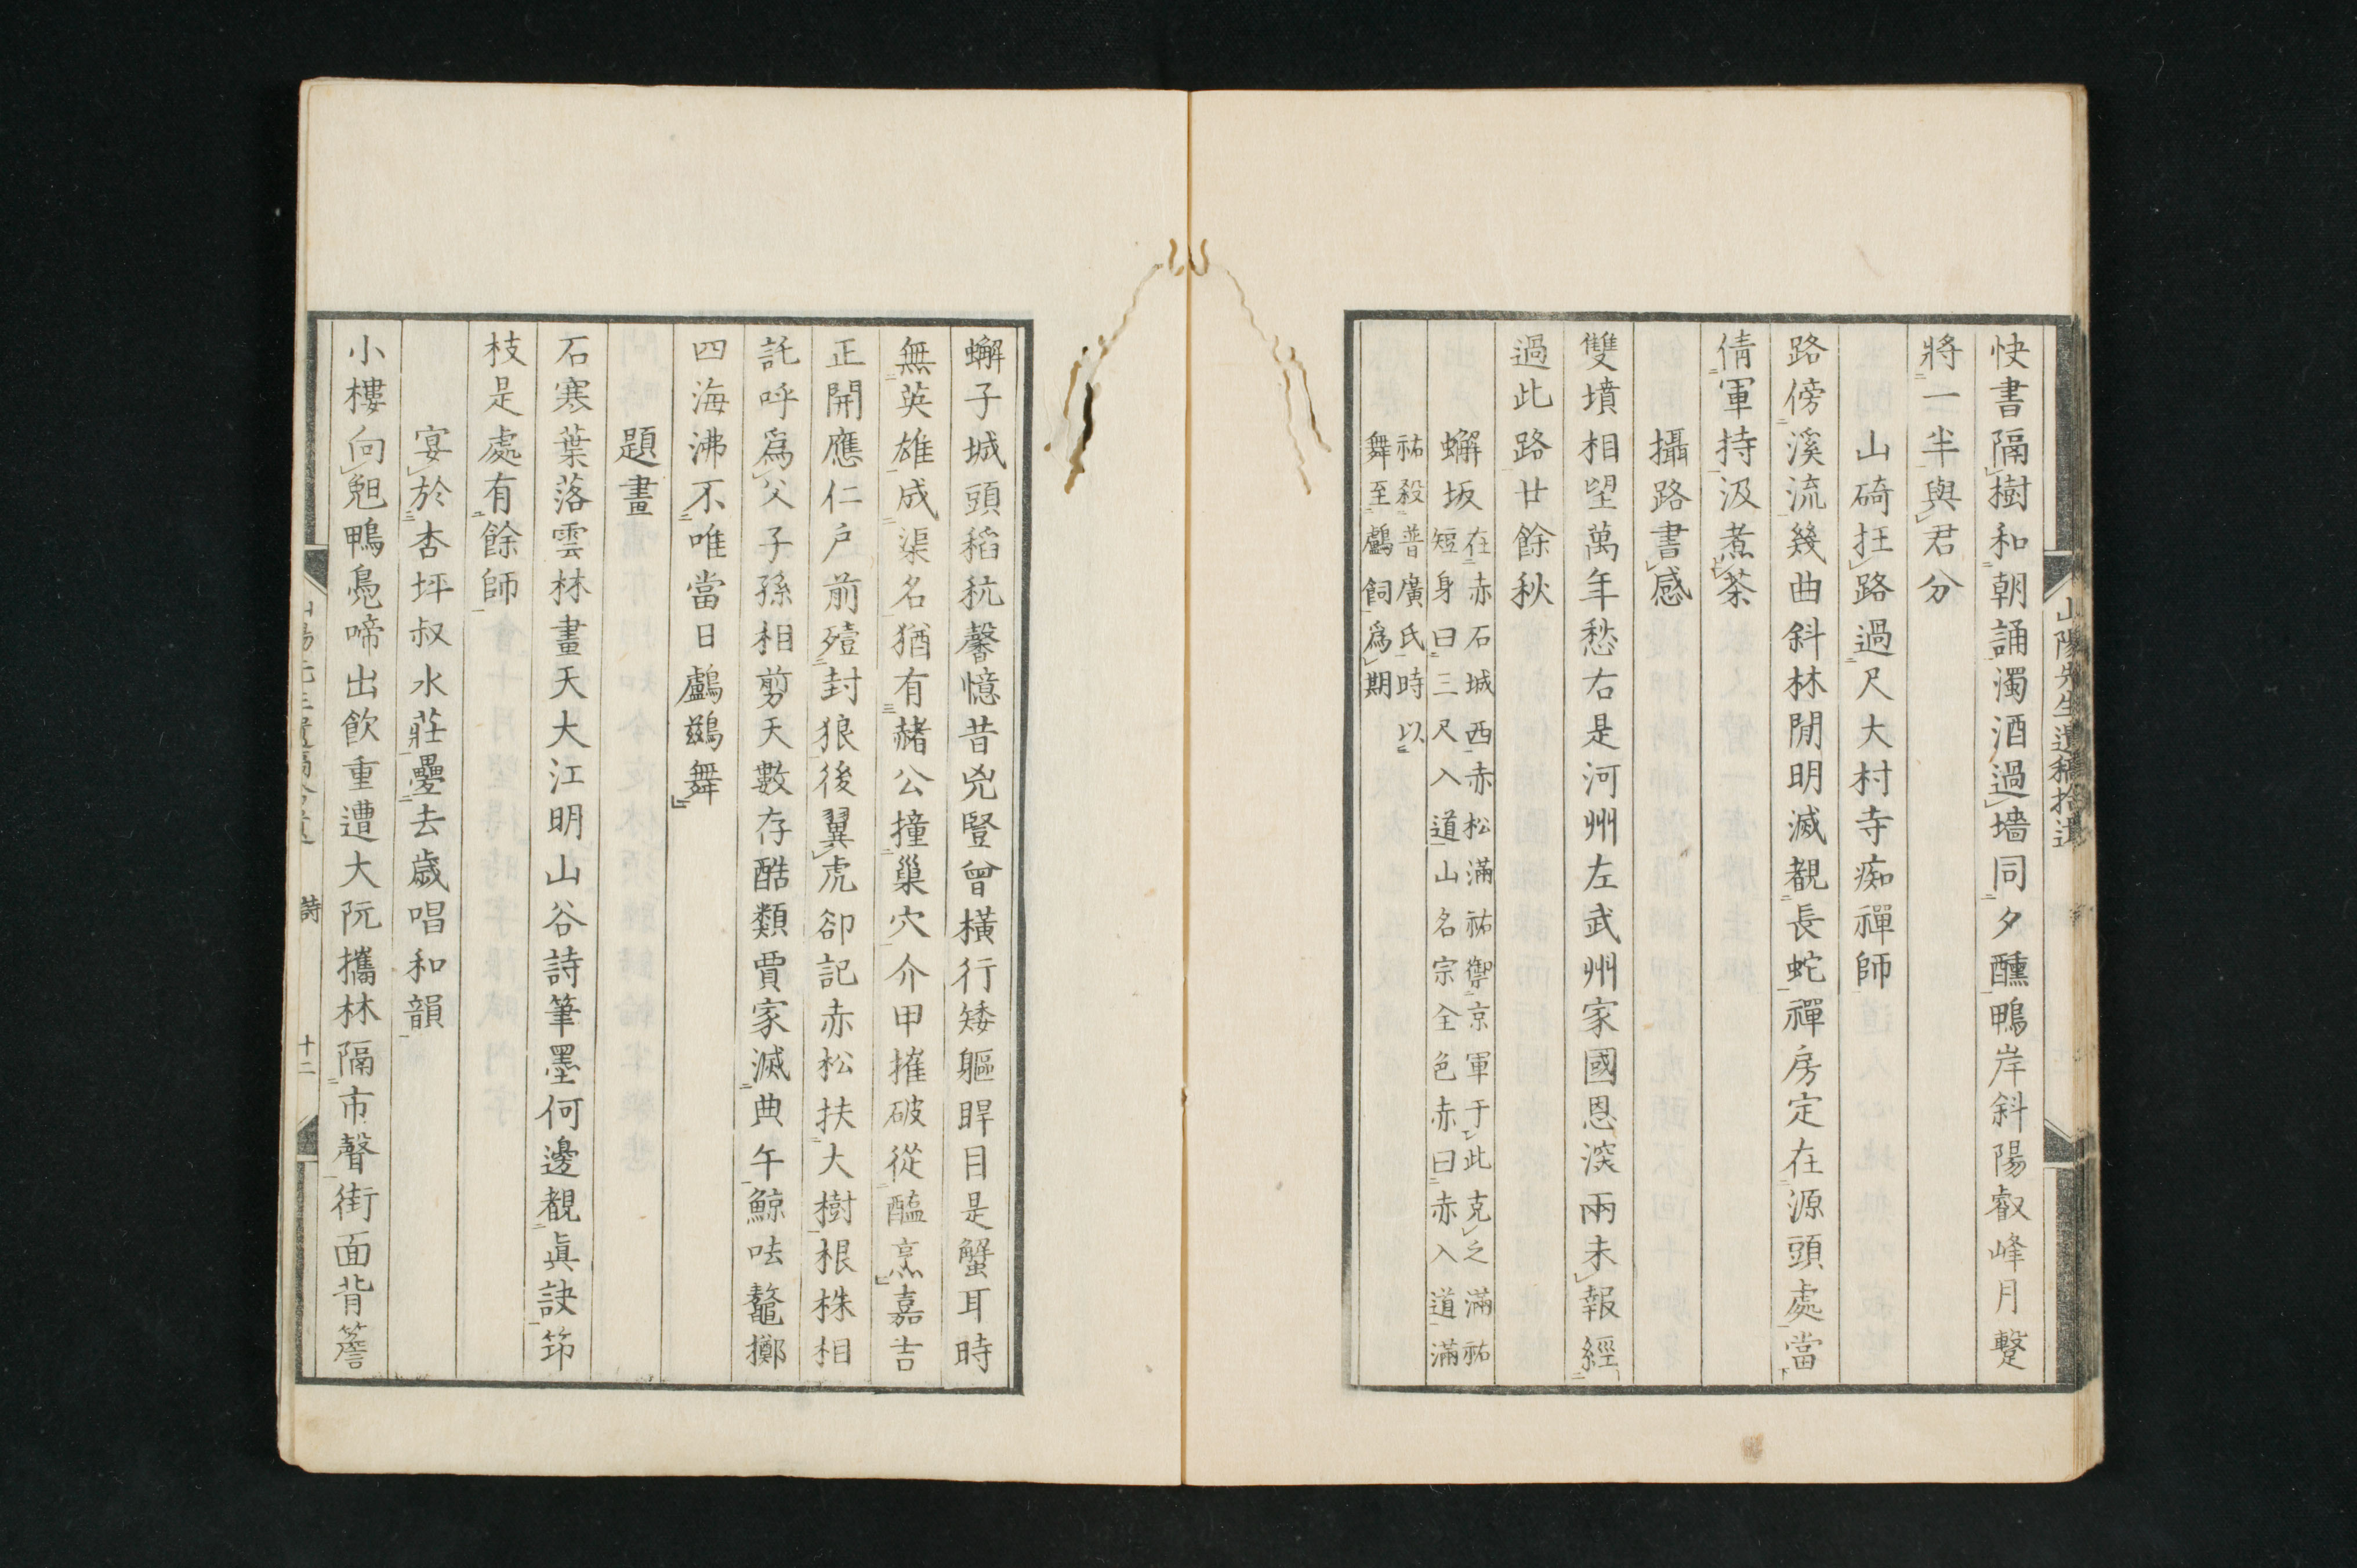 山陽先生遺稿拾遺
快書隔樹和朝誦濁酒過墻同夕醺鴨岸斜陽叡峰月蹔
將一半與君分
山碕抂路過尺大村寺痴禪師
路傍溪流幾曲斜林閒明滅覩長蛇禪房定在源頭處當
倩軍持汲煮茶
攝路書感
雙墳相望萬年愁右是河州左武州家國恩深兩未報經
過此路廿餘秋
蠏坂
在赤石城西赤松滿祐禦京軍于此克之滿祐
短身曰三尺入道山名宗全色赤曰赤入道滿
祐殺普廣氏時以
舞至鸕飼爲期
蠏子城頭稻秔馨憶昔兇豎曾橫行矮軀睅目是蟹耳時
無英雄成渠名猶有赭公撞巢穴介甲摧破從醢烹嘉吉
正開應仁戸前殪封狼後翼虎卻記赤松扶大樹根株相
託呼爲父子孫相剪天數存酷類賈家滅典午鯨呿鼇擲
四海沸不唯當日鸕鷀舞
題畫
石寒葉落雲林畫天大江明山谷詩筆墨何邊覩眞訣筇
枝是處有餘師
宴於杏坪叔水莊疊去歲唱和韻
小樓向鴨鳧啼出飮重遭大阮攜林隔市聲街面背簷
詩
十二